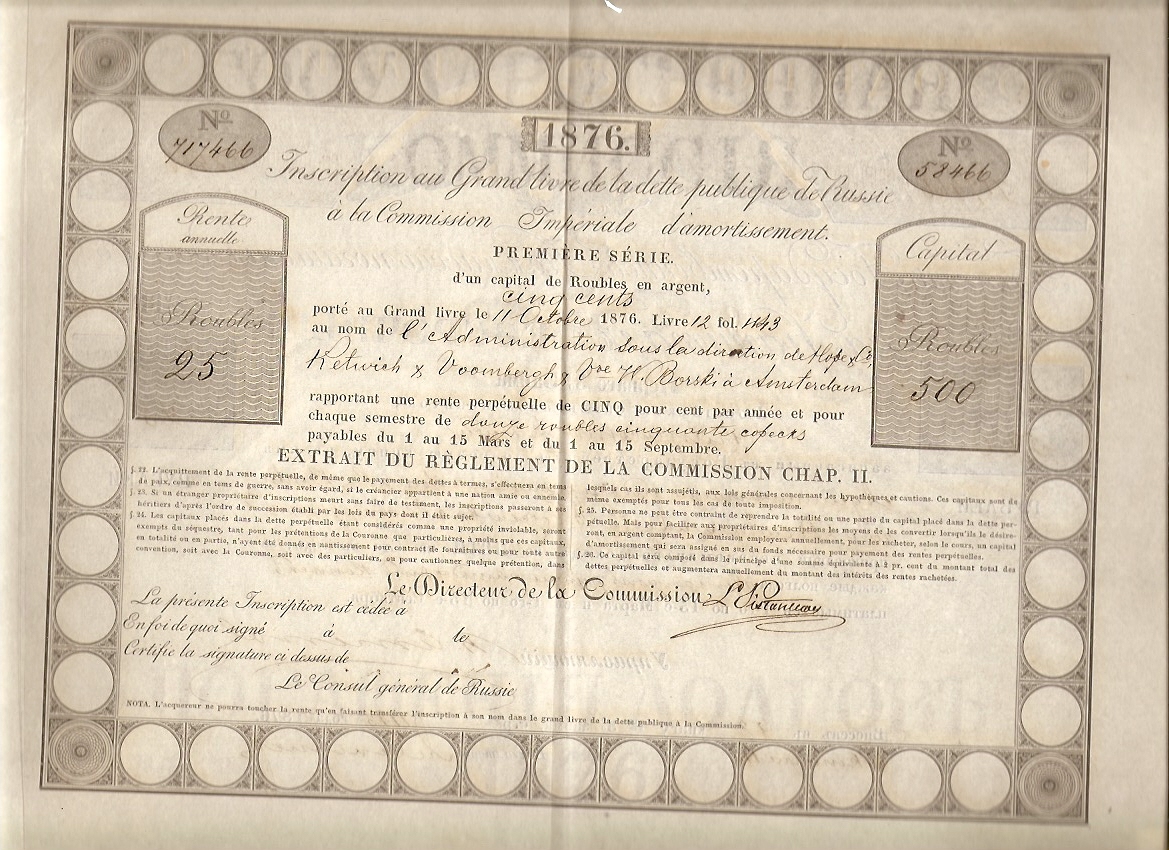 1876.
Nº
717466
Nº
58466
Inscription au Grand livre de la dette publique de Russie
à la Commission Impériale d'amortissement.
PREMIÈRE SÉRIE.
Rente
annuelle
Roubles
25
Capital
Roubles
500
d'un capital de Roubles en argent,
cinq cents
porté au Grand livre le 11 Octobre 1876. Livre 12 fol. 1143
au nom de l'Administration sous la direction de Hope & Cº,
Ketwich & Voombergh & Vve H. Borski à Amsterdam
rapportant une rente perpétuelle de CINQ pour cent par année et pour
chaque semestre de douze roubles cinquante copecks
payables du 1 au 15 Mars et du 1 au 15 Septembre.
EXTRAIT DU RÈGLEMENT DE LA COMMISSION CHAP. II.
§. 22. L'acquittement de la rente perpétuelle, de même que le payement des dettes à termes, s'effectuera en tems
de paix, comme en tems de guerre, sans avoir égard, si le créancier appartient à une nation amie ou ennemie.
§. 23. Si un étranger propriétaire d'inscriptions meurt sans faire de testament, les inscriptions passeront à ses
héritiers d'après l'ordre de succession établi par les lois du pays dont il était sujet.
§. 24. Les capitaux placés dans la dette perpétuelle étant considérés comme une propriété inviolable, seront
exempts du séquestre, tant pour les prétentions de la Couronne que particulières, à moins que ces capitaux,
en totalité ou en partie, n'ayent été donnés en nantissement pour contract de fournitures ou pour toute autre
convention, soit avec la Couronne, soit avec des particuliers, ou pour cautionner quelque prétention, dans
lesquels cas ils sont assujétis, aux lois générales concernant les hypothèques, et cautions. Ces capitaux sont de
même exemptés pour tous les cas de toute imposition.
§. 25. Personne ne peut être contraint de reprendre la totalité ou une partie du capital placé dans la dette per-
pétuelle. Mais pour faciliter aux propriétaires d'inscriptions les moyens de les convertir lorsqu'ils le désire-
ront, en argent comptant, la Commission employera annuellement, pour les racheter, selon le cours, un capital
d'amortissement qui sera assigné en sus du fonds nécessaire pour payement des rentes perpétuelles.
§. 26. Ce capital sera composé dans le principe d'une somme équivalente à pr. cent du montant total des
dettes perpétuelles et augmentera annuellement du montant des intérêts des rentes rachetées.
Le Directeur de la Commission
La présente Inscription est cédée à
En foi de quoi signé à le
Certifie la signature ci dessus de
Le Consul général de Russie
NOTA. L'acquereur ne pourra toucher la rente qu'en faisant transférer l'inscription à son nom dans le grand livre de la dette publique à la Commission.